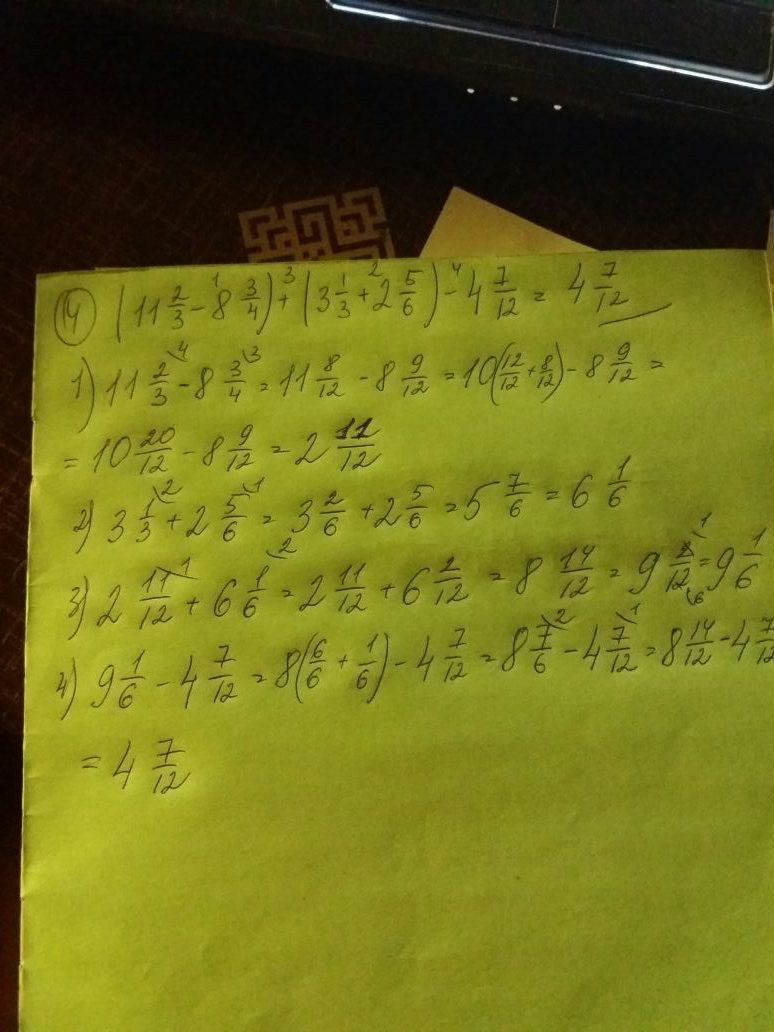 14 (11 2/3 - 8 3/4) + (3 1/3 + 2 5/6) - 4 7/12 = 4 7/12
1) 11 2/3 - 8 3/4 = 11 8/12 - 8 9/12 = 10(12/12 + 8/12) - 8 9/12 =
= 10 20/12 - 8 9/12 = 2 11/12
2) 3 1/3 + 2 5/6 = 3 2/6 + 2 5/6 = 5 7/6 = 6 1/6
3) 2 11/12 + 6 1/6 = 2 11/12 + 6 2/12 = 8 14/12 = 9 2/12 = 9 1/6
4) 9 1/6 - 4 7/12 = 8(6/6 + 1/6) - 4 7/12 = 8 7/6 - 4 7/12 = 8 14/12 - 4 7/12
= 4 7/12